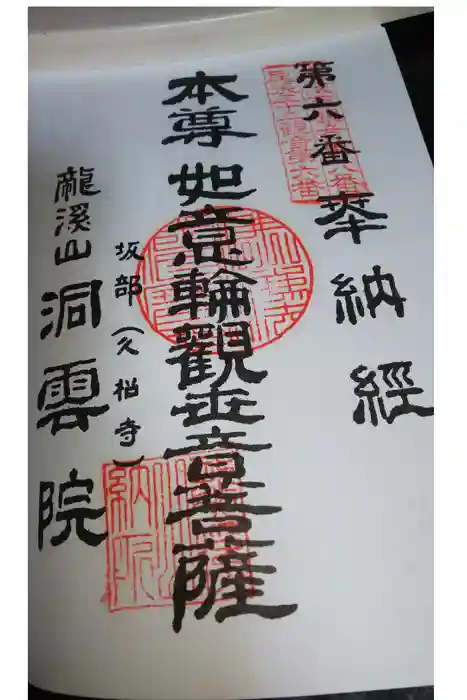 第六番 奉納經
本尊 如意輪觀世音菩薩
坂部(久松寺)
龍溪山 洞雲院